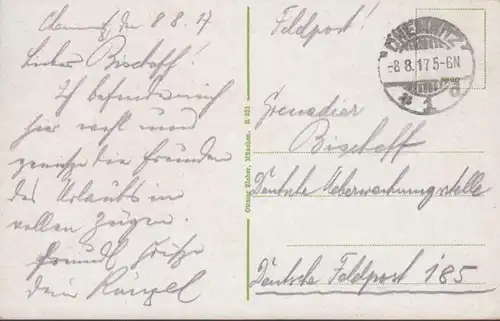 Chemnitz, den 8 8. 17
Lieber Bischoff!
Ich befinde mich
hier wohl und
genieße die Freuden
des Urlaubs in
vollen Zügen.
Freundl Grüße
Dein
Feldpost!
CHEMNITZ
-8 8.17.5-6N
* 1
Grenadier
Bischoff
Deutsche Ueberwachungsstelle
Deutsche Feldpost 185
Ottmar Zieher, München. R 931